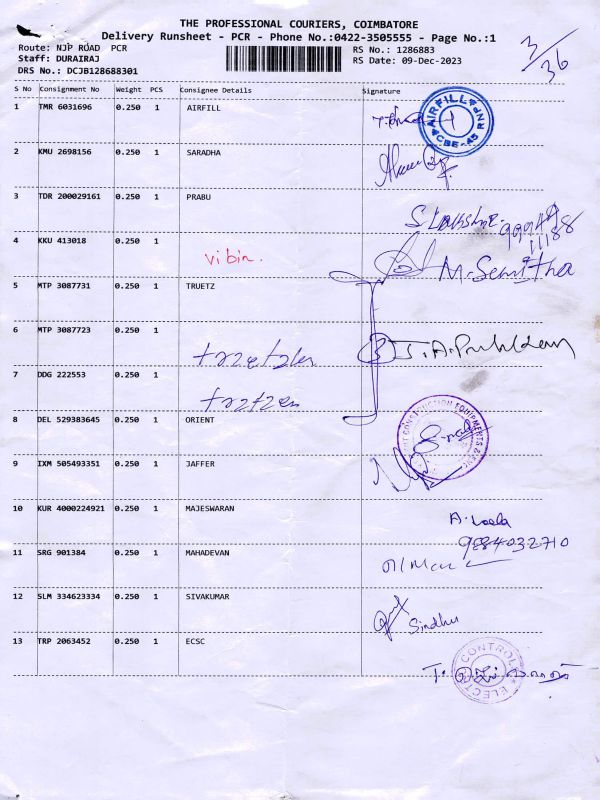 THE PROFESSIONAL COURIERS, COIMBATORE
Delivery Runsheet - PCR - Phone No.:0422-3505555 - Page No.:1
Route: NJP ROAD PCR
Staff: DURAIRAJ
DRS No.: DCJB128688301
RS No.: 1286883
RS Date: 09-Dec-2023
3/36
S No Consignment No Weight PCS Consignee Details Signature
1 TMR 6031696 0.250 1 AIRFILL
AIRFILL
CBE-45
2 KMU 2698156 0.250 1 SARADHA
3 TDR 200029161 0.250 1 PRABU
4 KKU 413018 0.250 1
vibin.
5 MTP 3087731 0.250 1 TRUETZ
6 MTP 3087723 0.250 1
3
7 DDG 222553 0.250 1
8 DEL 529383645 0.250 1 ORIENT
CONSTRUCTION EQUIPMENTS &
9 IXM 505493351 0.250 1 JAFFER
10 KUR 4000224921 0.250 1 MAJESWARAN
9884032710
11 SRG 901384 0.250 1 MAHADEVAN
12 SLM 334623334 0.250 1 SIVAKUMAR
Sindhu
13 TRP 2063452 0.250 1 ECSC